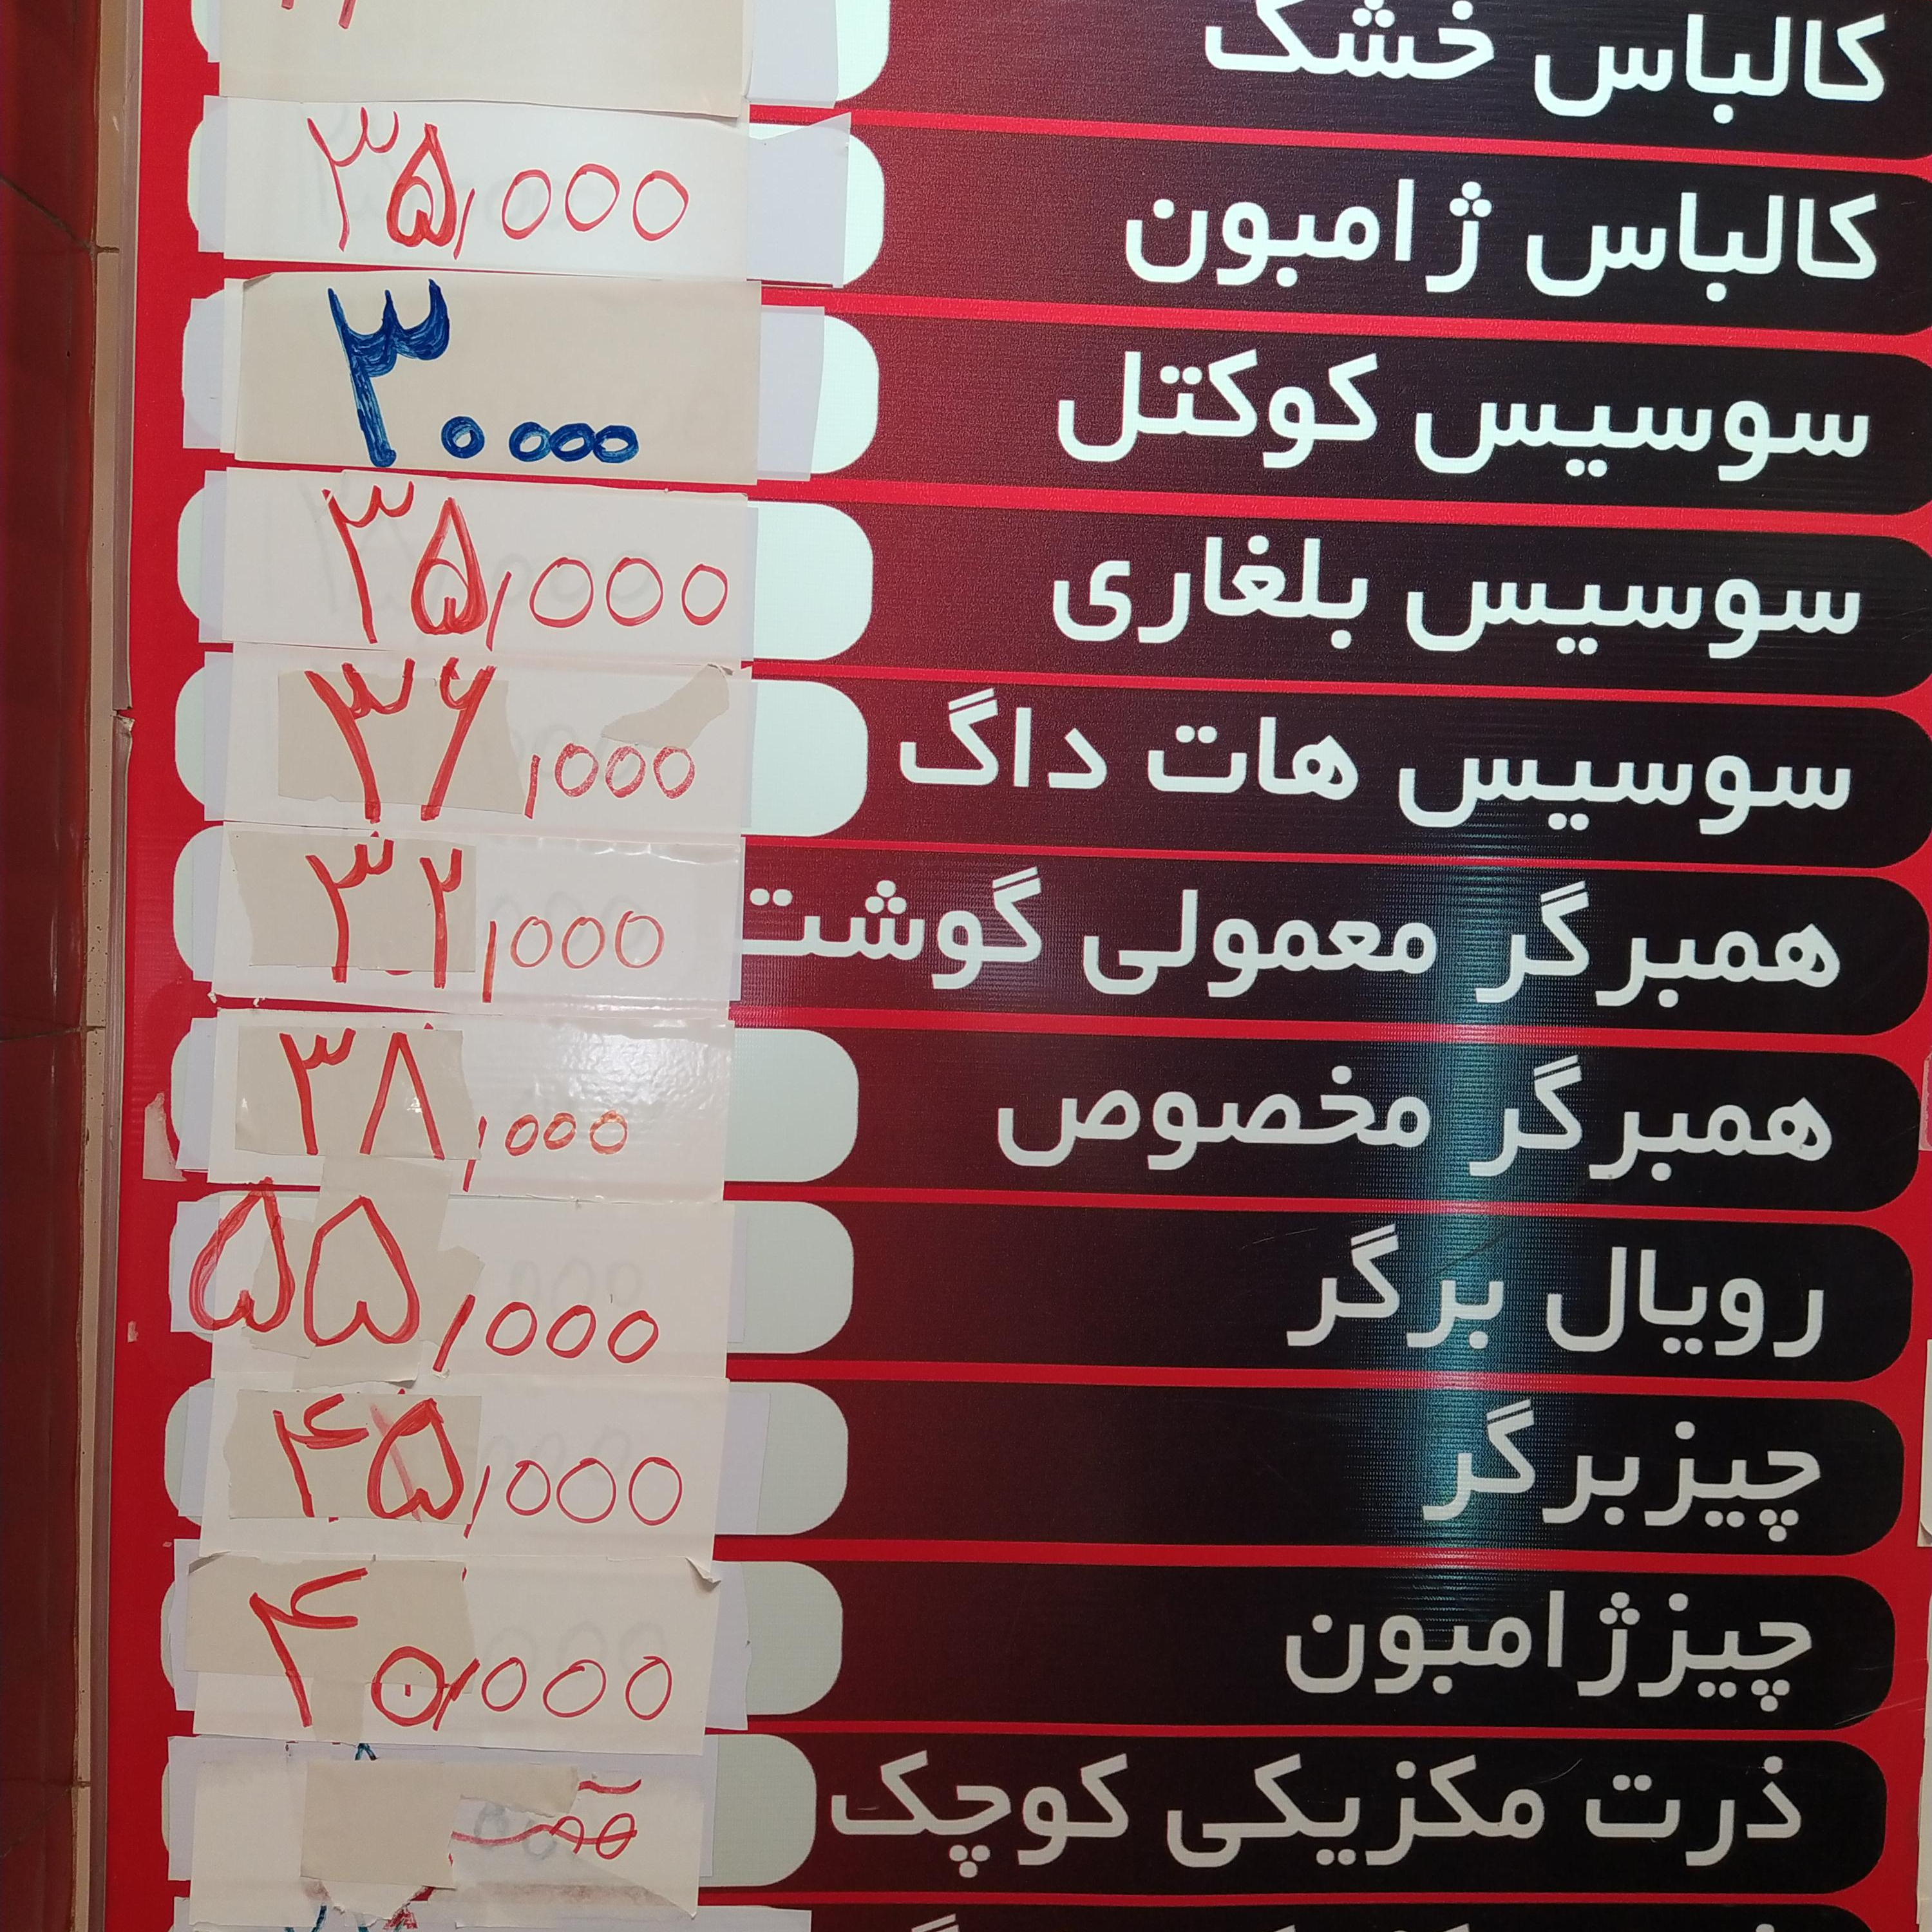 کالباس خشک
کالباس ژامبون ۳۵,۰۰۰
سوسیس کوکتل ۳۰۰۰۰
سوسیس بلغاری ۳۵,۰۰۰
سوسیس هات داگ ۳۶,۰۰۰
همبرگر معمولی گوشت ۳۲,۰۰۰
همبرگر مخصوص ۳۸,۰۰۰
رویال برگر ۵۵,۰۰۰
چیزبرگر ۴۵,۰۰۰
چیزژامبون ۴۰,۰۰۰
ذرت مکزیکی کوچک